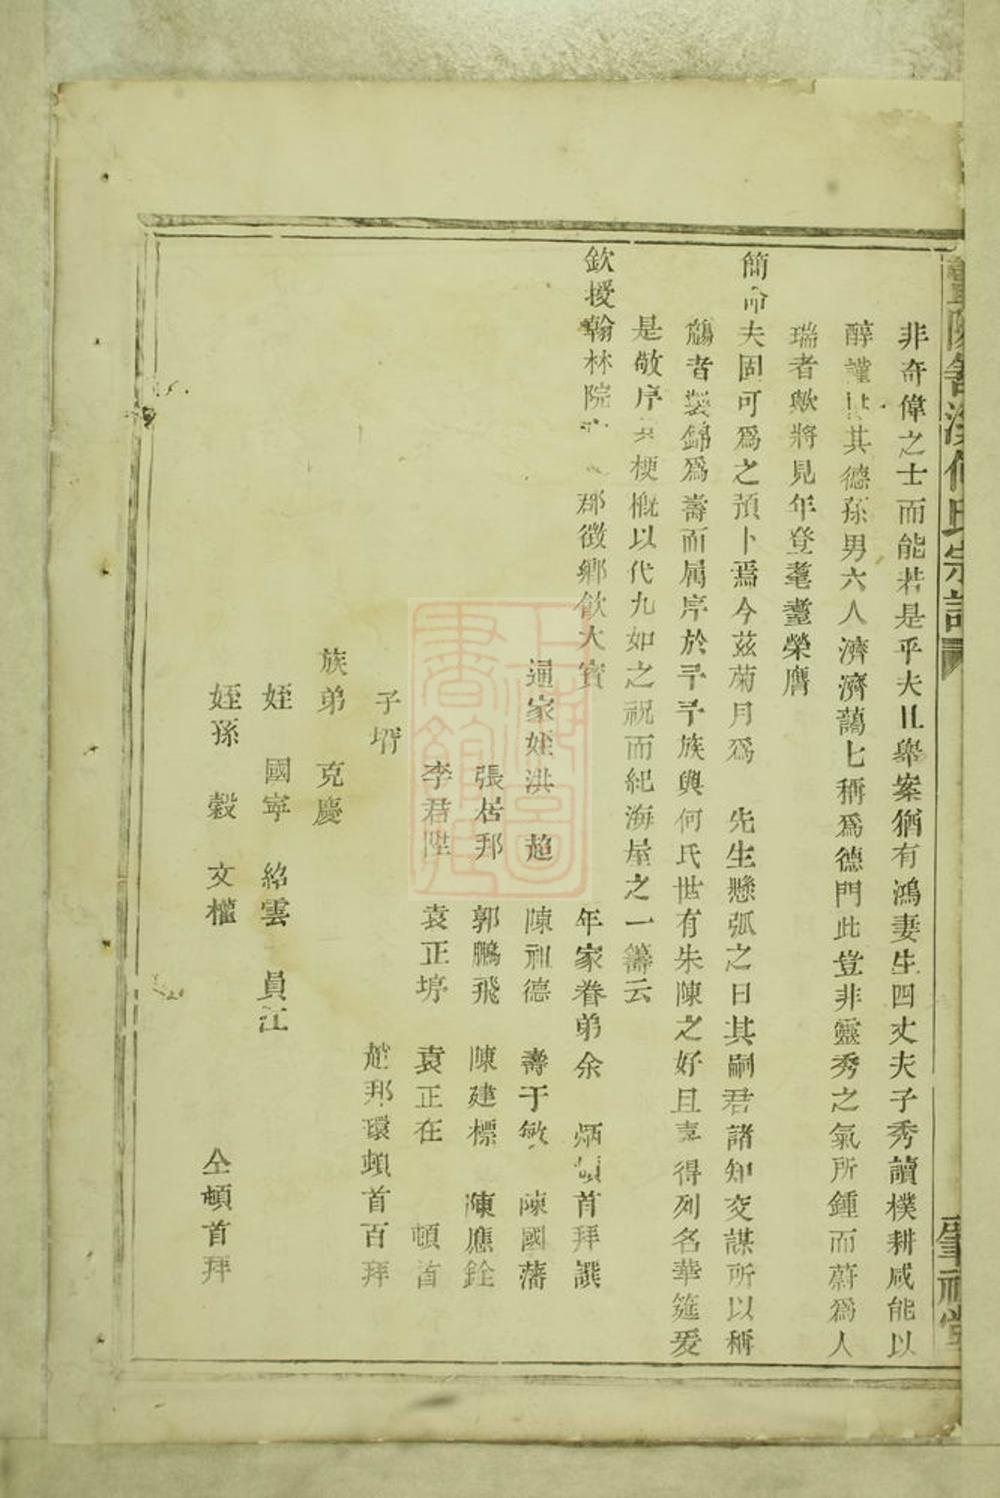 非奇偉之士而能若是乎夫且舉案猶有鴻妻生四丈夫子秀讀樸耕咸能以
醇謹 其德孫男六人濟濟藹七稱爲德門此豈非靈秀之氣所鍾而蔚爲人
瑞者歟將見年登耄耋榮膺
簡命夫固可爲之預卜焉今茲菊月爲 先生懸弧之日其嗣君諸知交謀所以稱
觴者製錦爲壽而属序於予予族與何氏世有朱陳之好且喜得列名華筵爰
是敬序其梗概以代九如之祝而紀海屋之一籌云
欽授翰林院 郡徵鄉飲大賓
年家眷弟余 炳 首拜譔
通家姪洪 趙 陳祖德 壽于敏 陳國藩
張居邦 郭鵬飛 陳建標 陳應銓
李君陞 袁正垿 袁正在 頓首
子壻 趙邦環頓首百拜
族弟 克慶
姪 國寧 紹雲 員江
姪孫 穀 文權 仝頓首拜
何氏宗譜
肇禋堂
上海圖書館藏